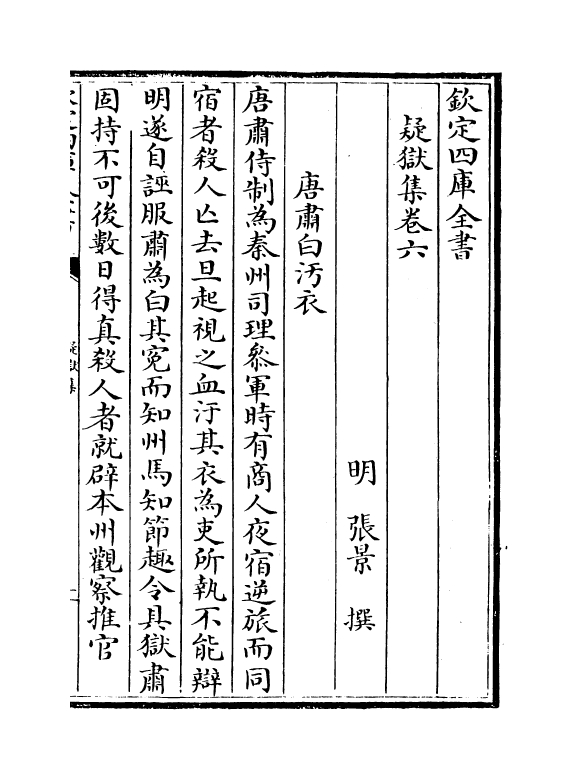 欽定四庫全書
疑獄集卷六
明 張景 撰
唐肅白汚衣
唐肅侍制為秦州司理叅軍時有商人夜宿逆旅而同
宿者殺人亡去旦起視之血汙其衣為吏所執不能辯
明遂自誣服肅為白其寃而知州馬知節趣令具獄肅
固持不可後數日得真殺人者就辟本州觀察推官